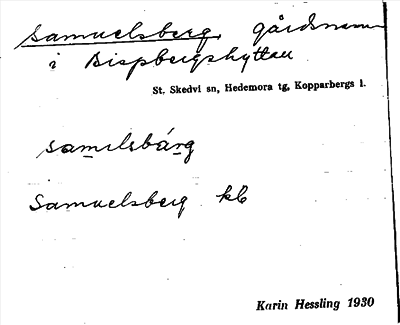 Samuelsberg, gårdsnamn
i Bispbergshyttan
St. Skedvi sn, Hedemora tg, Kopparbergs l.
samɩlsbárg
Samuelsberg kb
Karin Hessling 1930